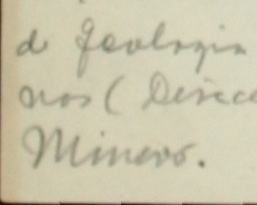 de Geologia
nos ( Direcc
Mineros.